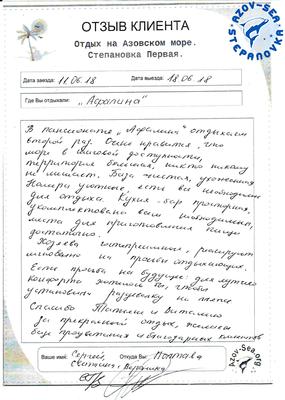 ОТЗЫВ КЛИЕНТА
Отдых на Азовском море.
Степановка Первая.
AZOV-SEA
STEPANOVKA
Дата заезда: 11.06.18 Дата выезда: 18.06.18
Где Вы отдыхали: "Афалина"
В пансионате "Афалина" отдыхаем
второй раз. Очень нравится, что
море в шаговой доступности,
территория большая, никто никому
не мешает. База чистая, ухоженная
Номера уютные, есть все необходимое
для отдыха. Кухня-бар просторная,
укомплектована всем необходимым,
места для приготовления пищи
достаточно.
Хозяева гостеприимные, реагируют
мгновенно на просьбы отдыхающих.
Есть просьба на будущее: для лучшего
комфорта хотелось бы, чтобы
установили раздевалку на пляже
Спасибо Татьяне и Виталию
за прекрасный отдых, желаем
базе процветания и благодарных клиентов
Ваше имя: Сергей, Откуда Вы: Полтава
Светлана, Вероника
Azov-Sea.org